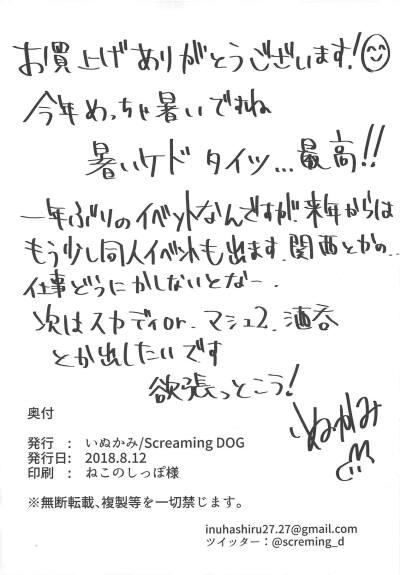 お買上げありがとうございます!
今年めっちゃ暑いですね
暑いケド タイツ...最高!!
一年ぶりのイベントなんですが、来年からは
もう少し同人イベントも出ます。関西とかの...
仕事どうにかしないとなー。
次はスカディor. マシュ2. 酒呑
とか出したいです
欲張っとこう!
いぬかみ
奥付
発行 : いぬかみ/Screaming DOG
発行日: 2018.8.12
印刷 : ねこのしっぽ様
※無断転載、複製等を一切禁じます。
inuhashiru27.27@gmail.com
ツイッター:@screming_d